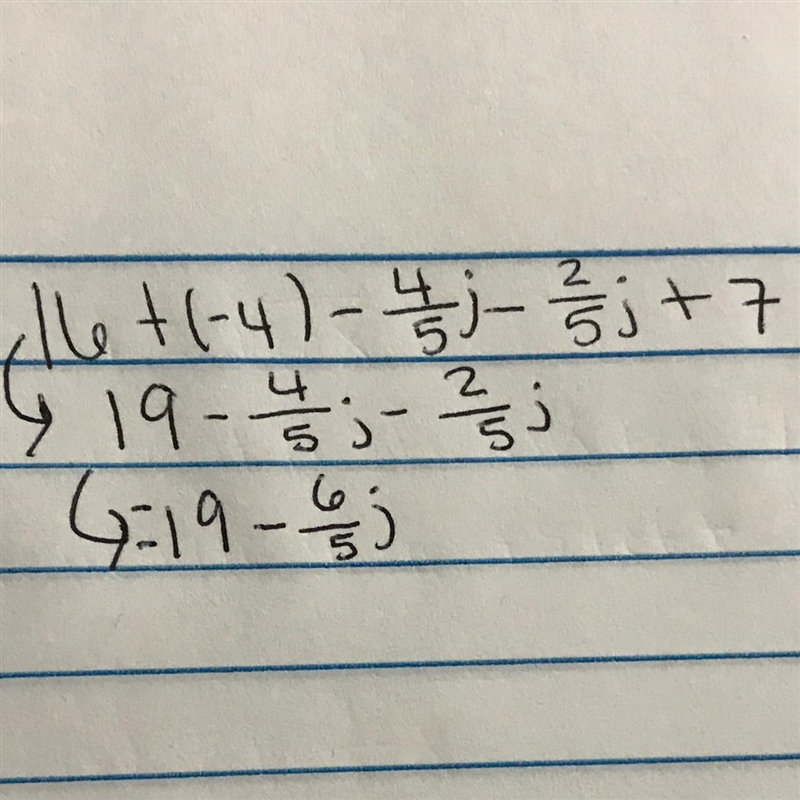 16 + (-4) - 4/5 j - 2/5 j + 7
19 - 4/5 j - 2/5 j
= 19 - 6/5 j